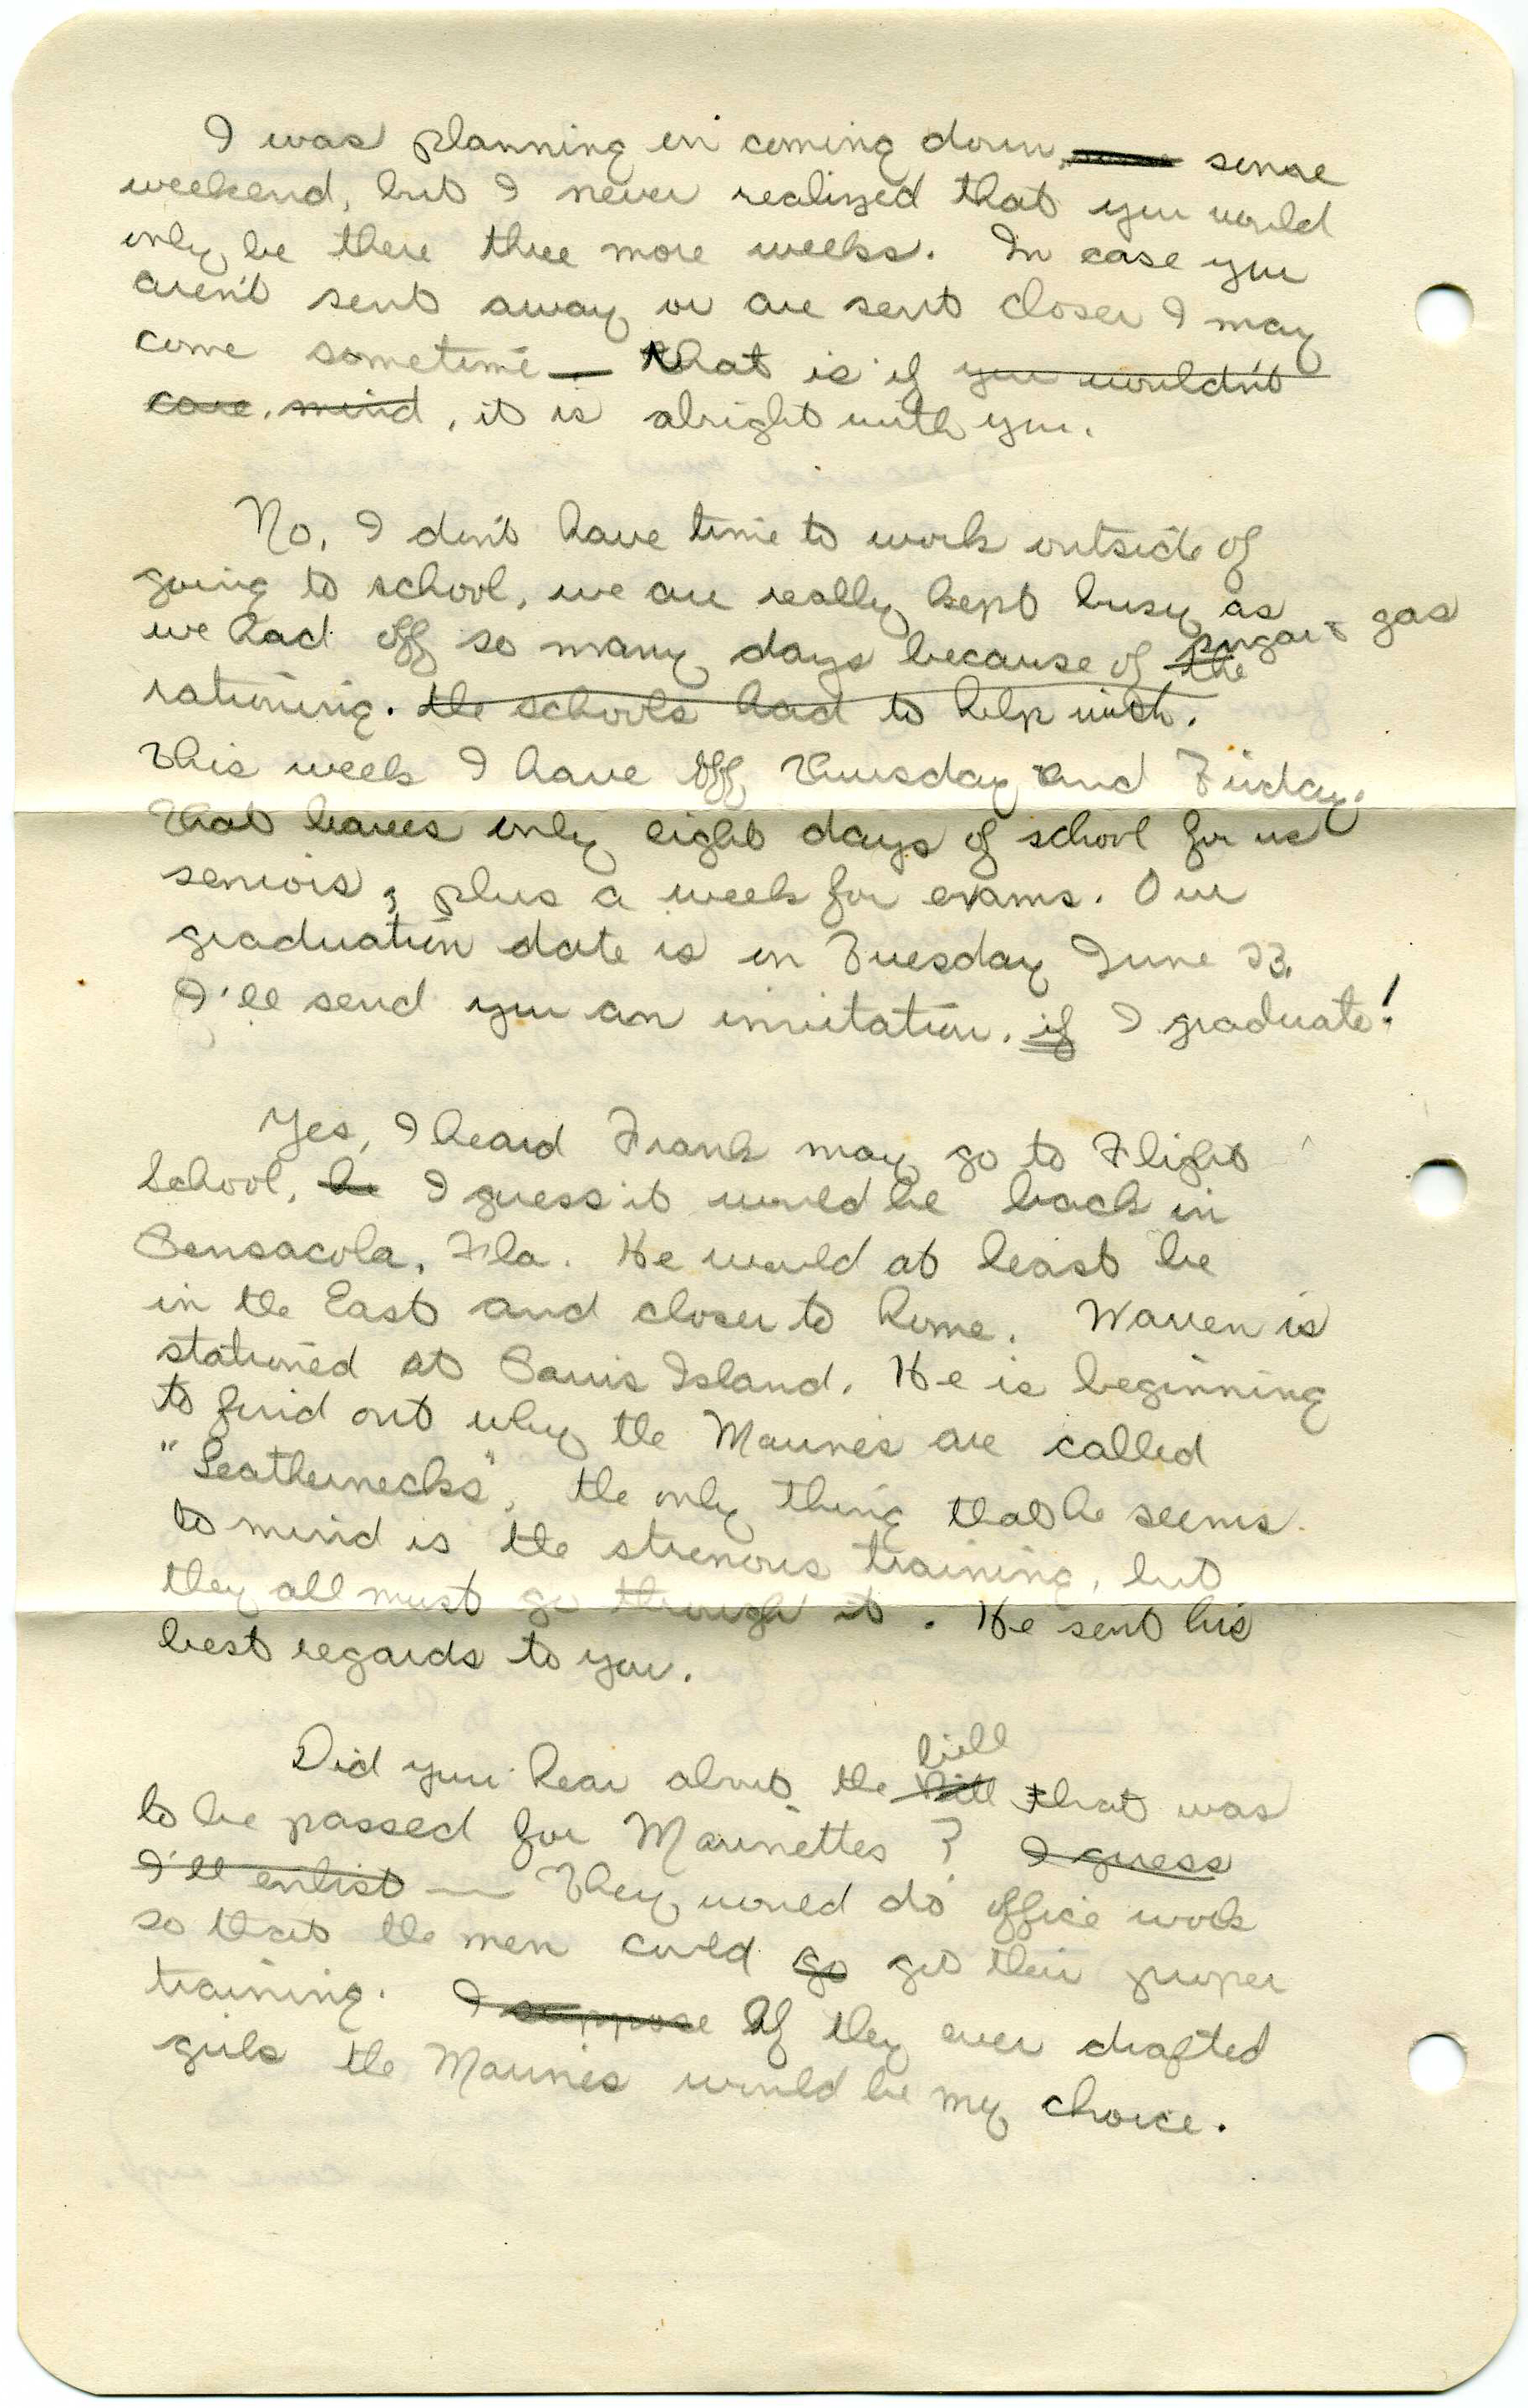 I was planning on coming down, some
weekend, but I never realized that you would
only be there three more weeks. In case you
aren't sent away or are sent closer I may
come sometime — that is if ~~you wouldn't~~
~~care, mind~~, it is alright with you.
No, I don't have time to work outside of
going to school, we are really kept busy as
we had off so many days because of ~~the~~ sugar & gas
rationing. ~~the schools had to help with.~~
This week I have off Thursday and Friday.
That leaves only eight days of school for us
seniors, plus a week for exams. Our
graduation date is on Tuesday June 23.
I'll send you an invitation, if I graduate!
Yes, I heard Frank may go to Flight
School, ~~he~~ I guess it would be back in
Pensacola, Fla. He would at least be
in the East and closer to home. Warren is
stationed at Parris Island. He is beginning
to find out why the Marines are called
"Leathernecks", the only thing that he seems
to mind is the strenous training, but
they all must go through it. He sent his
best regards to you.
Did you hear about the bill that was
to be passed for Marinettes? ~~I guess~~
~~I'll enlist~~ — They would do office work
so that the men could ~~go~~ get their proper
training. ~~I suppose~~ If they ever drafted
girls the Marines would be my choice.